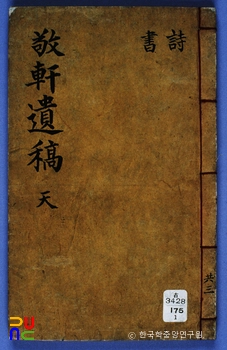 敬軒遺稿 天
詩
書
共三
古
3428
175
1
© 한국학중앙연구원